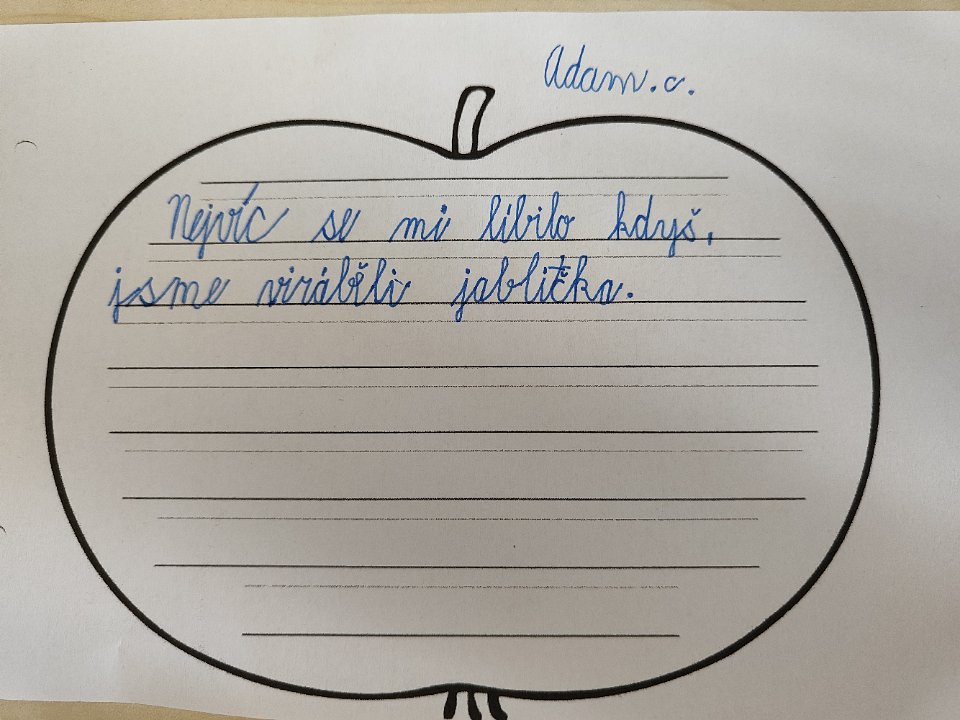 Adam.c.
Nejvíc se mi líbilo kdyš,
jsme viráběli jablička.